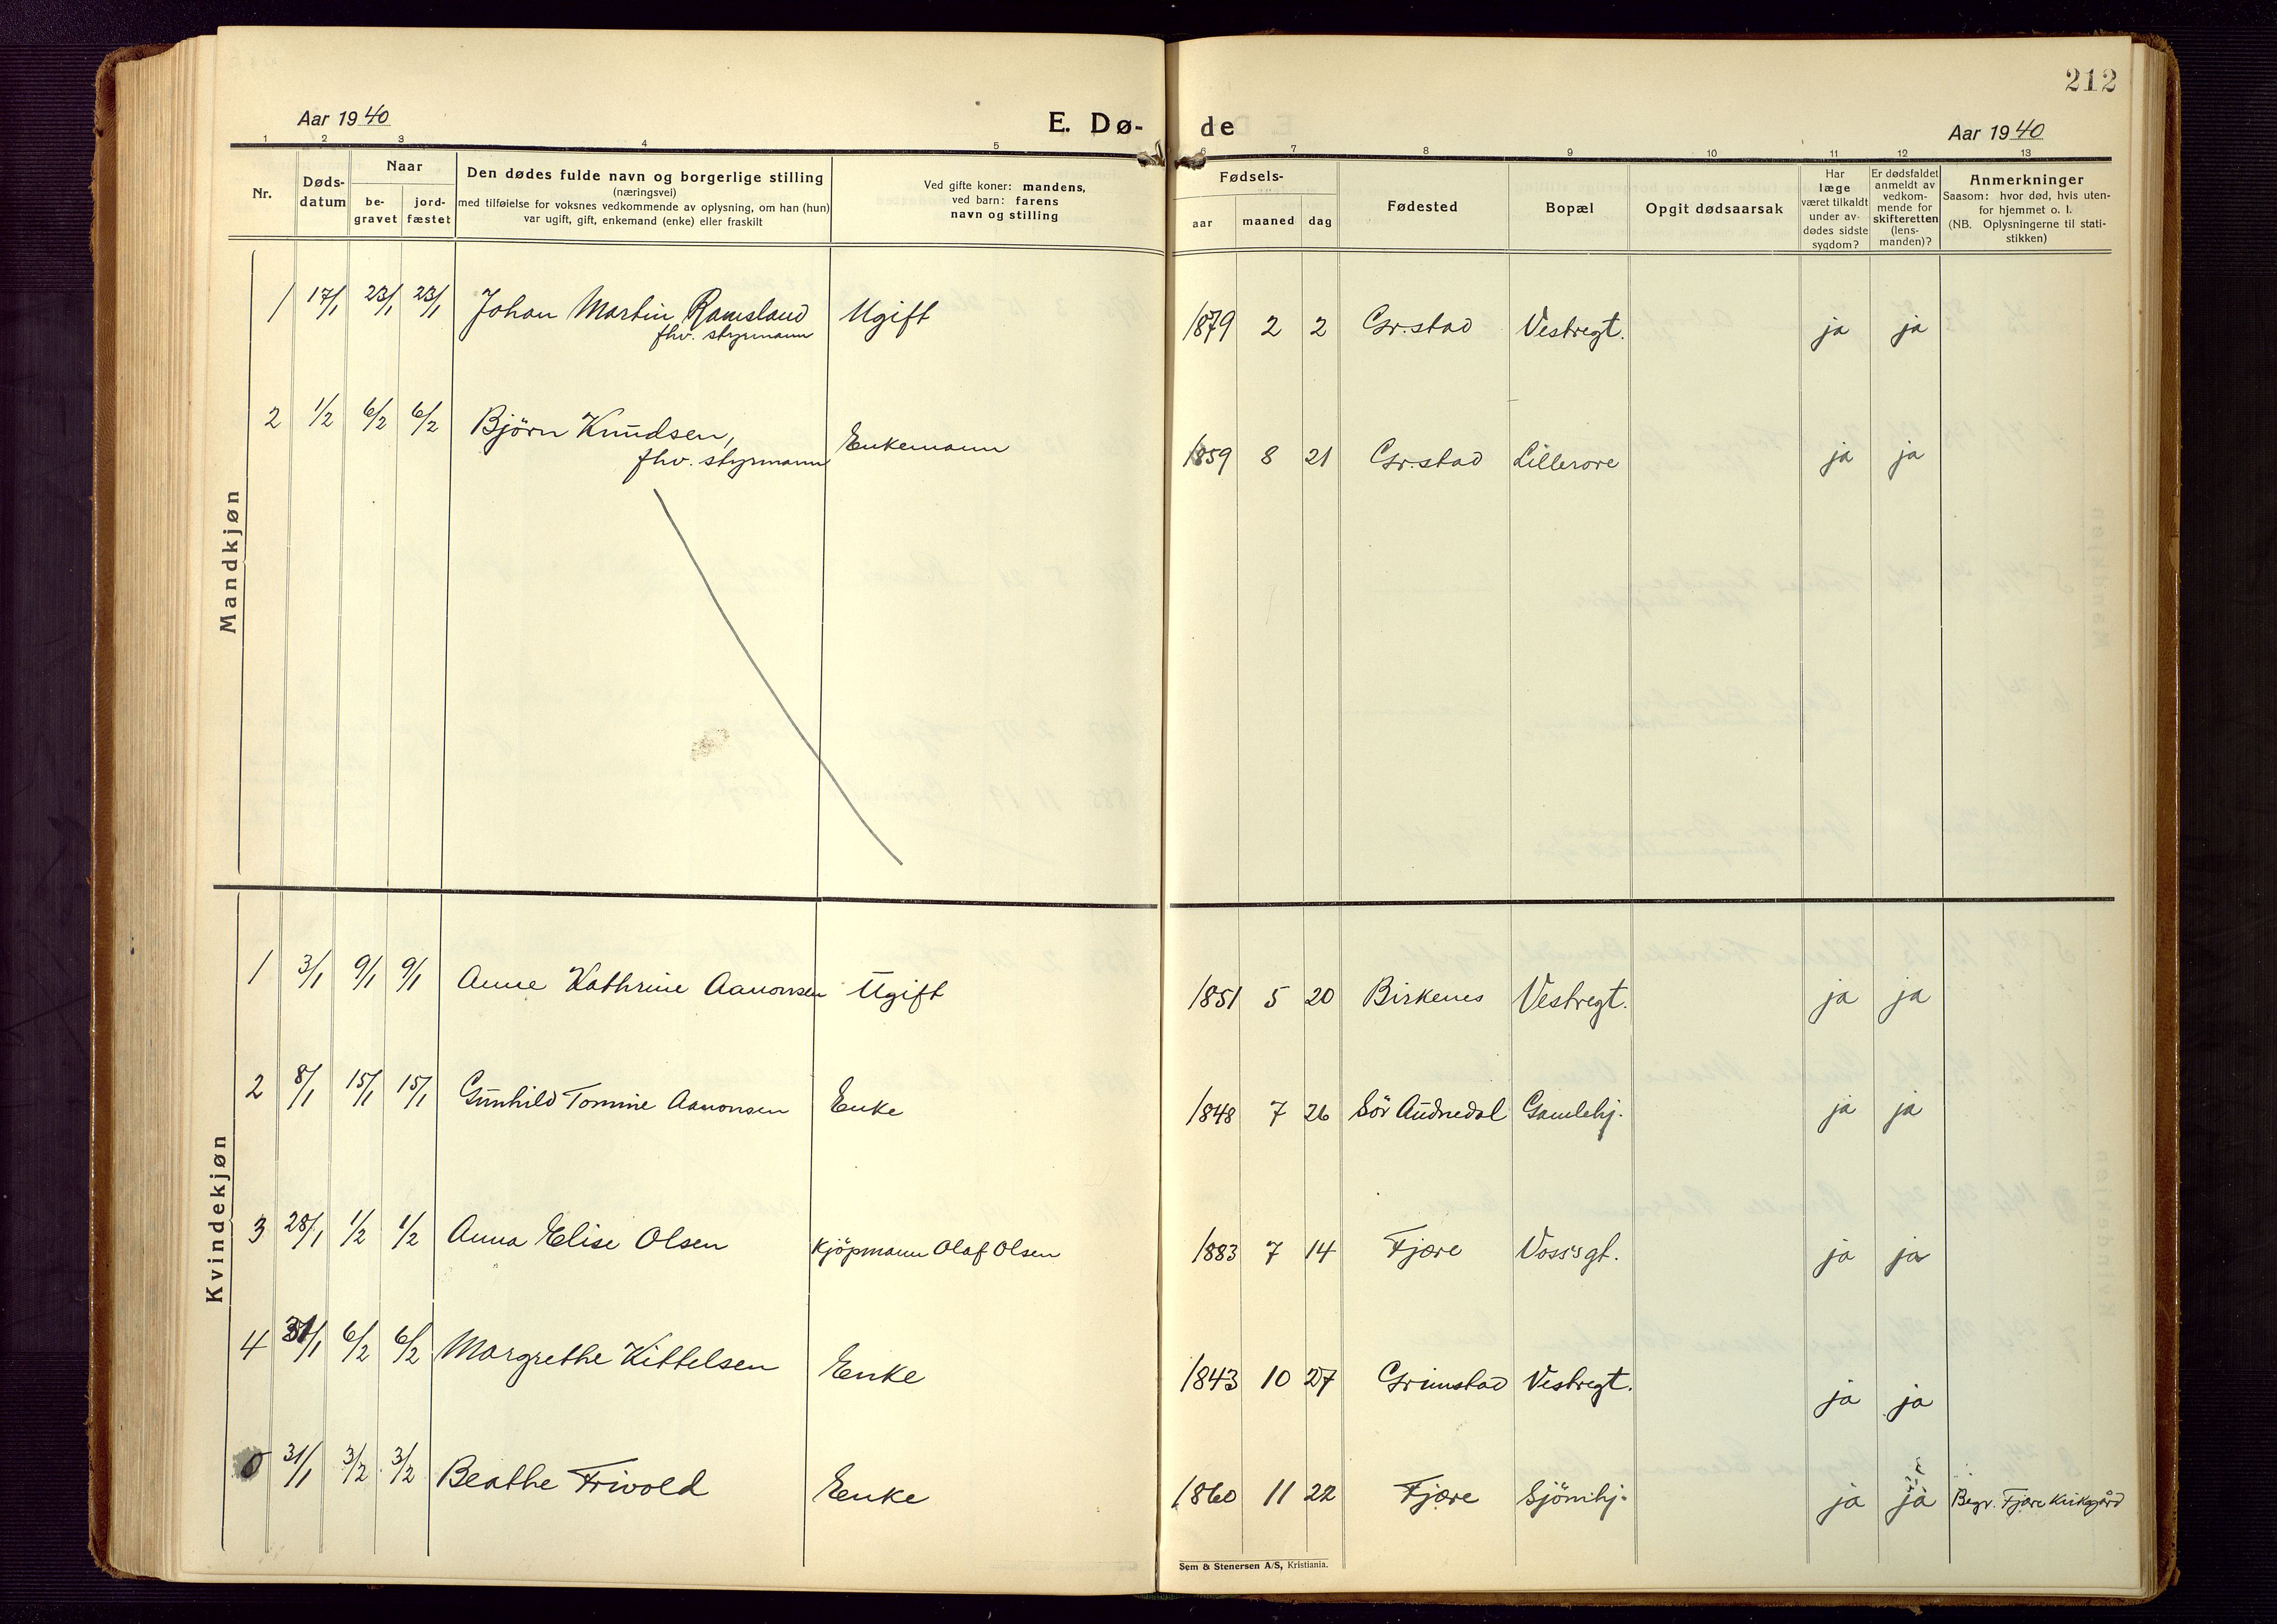 212
Aar 1940
E. Dø-
de
Aar 1940
1 2 3 4 5
6 7 8 9 10 11 12 13
Nr.
Døds-
datum
Naar
be-
gravet
jord-
fæstet
Den dødes fulde navn og borgerlige stilling
(næringsvei)
med tilføielse for voksnes vedkommende av oplysning, om han (hun)
var ugift, gift, enkemand (enke) eller fraskilt
Ved gifte koner: mandens,
ved barn: farens
navn og stilling
Fødsels-
aar
maaned
dag
Fødested
Bopæl
Opgit dødsaarsak
Har
læge
været tilkaldt
under av-
dødes sidste
sygdom?
Er dødsfaldet
anmeldt av
vedkom-
mende for
skifteretten
(lens-
manden)?
Anmerkninger
Saasom: hvor død, hvis uten-
for hjemmet o. l.
(NB. Oplysningerne til stati-
stikken)
Mandkjøn
1 17/1 23/1 23/1 Johan Martin Ramsland Ugift 1879 2 2 Gr.stad Vestregt. ja ja
fhv. styrmann
2 1/2 6/2 6/2 Björn Knudsen, Enkemann 1859 8 21 Gr.stad Lillerore ja ja
fhv. styrmann
Kvindekjøn
1 3/1 9/1 9/1 Anne Kathrine Aanonsen Ugift 1851 5 20 Birkenes Vestregt. ja ja
2 8/1 15/1 15/1 Gunhild Tomine Aanonsen Enke 1848 7 26 Sör Audnedal Gamlehj. ja ja
3 28/1 1/2 1/2 Anna Elise Olsen Kjöpmann Olaf Olsen 1883 7 14 Fjære Voss's gt. ja ja
4 31/1 6/2 6/2 Margrethe Kittelsen Enke 1843 10 27 Grimstad Vestregt. ja ja
0 31/1 3/2 3/2 Beathe Frivold Enke 1860 11 22 Fjære Sjömhj. ja ja Begr. Fjære Kirkegård
Sem & Stenersen A/S, Kristiania.